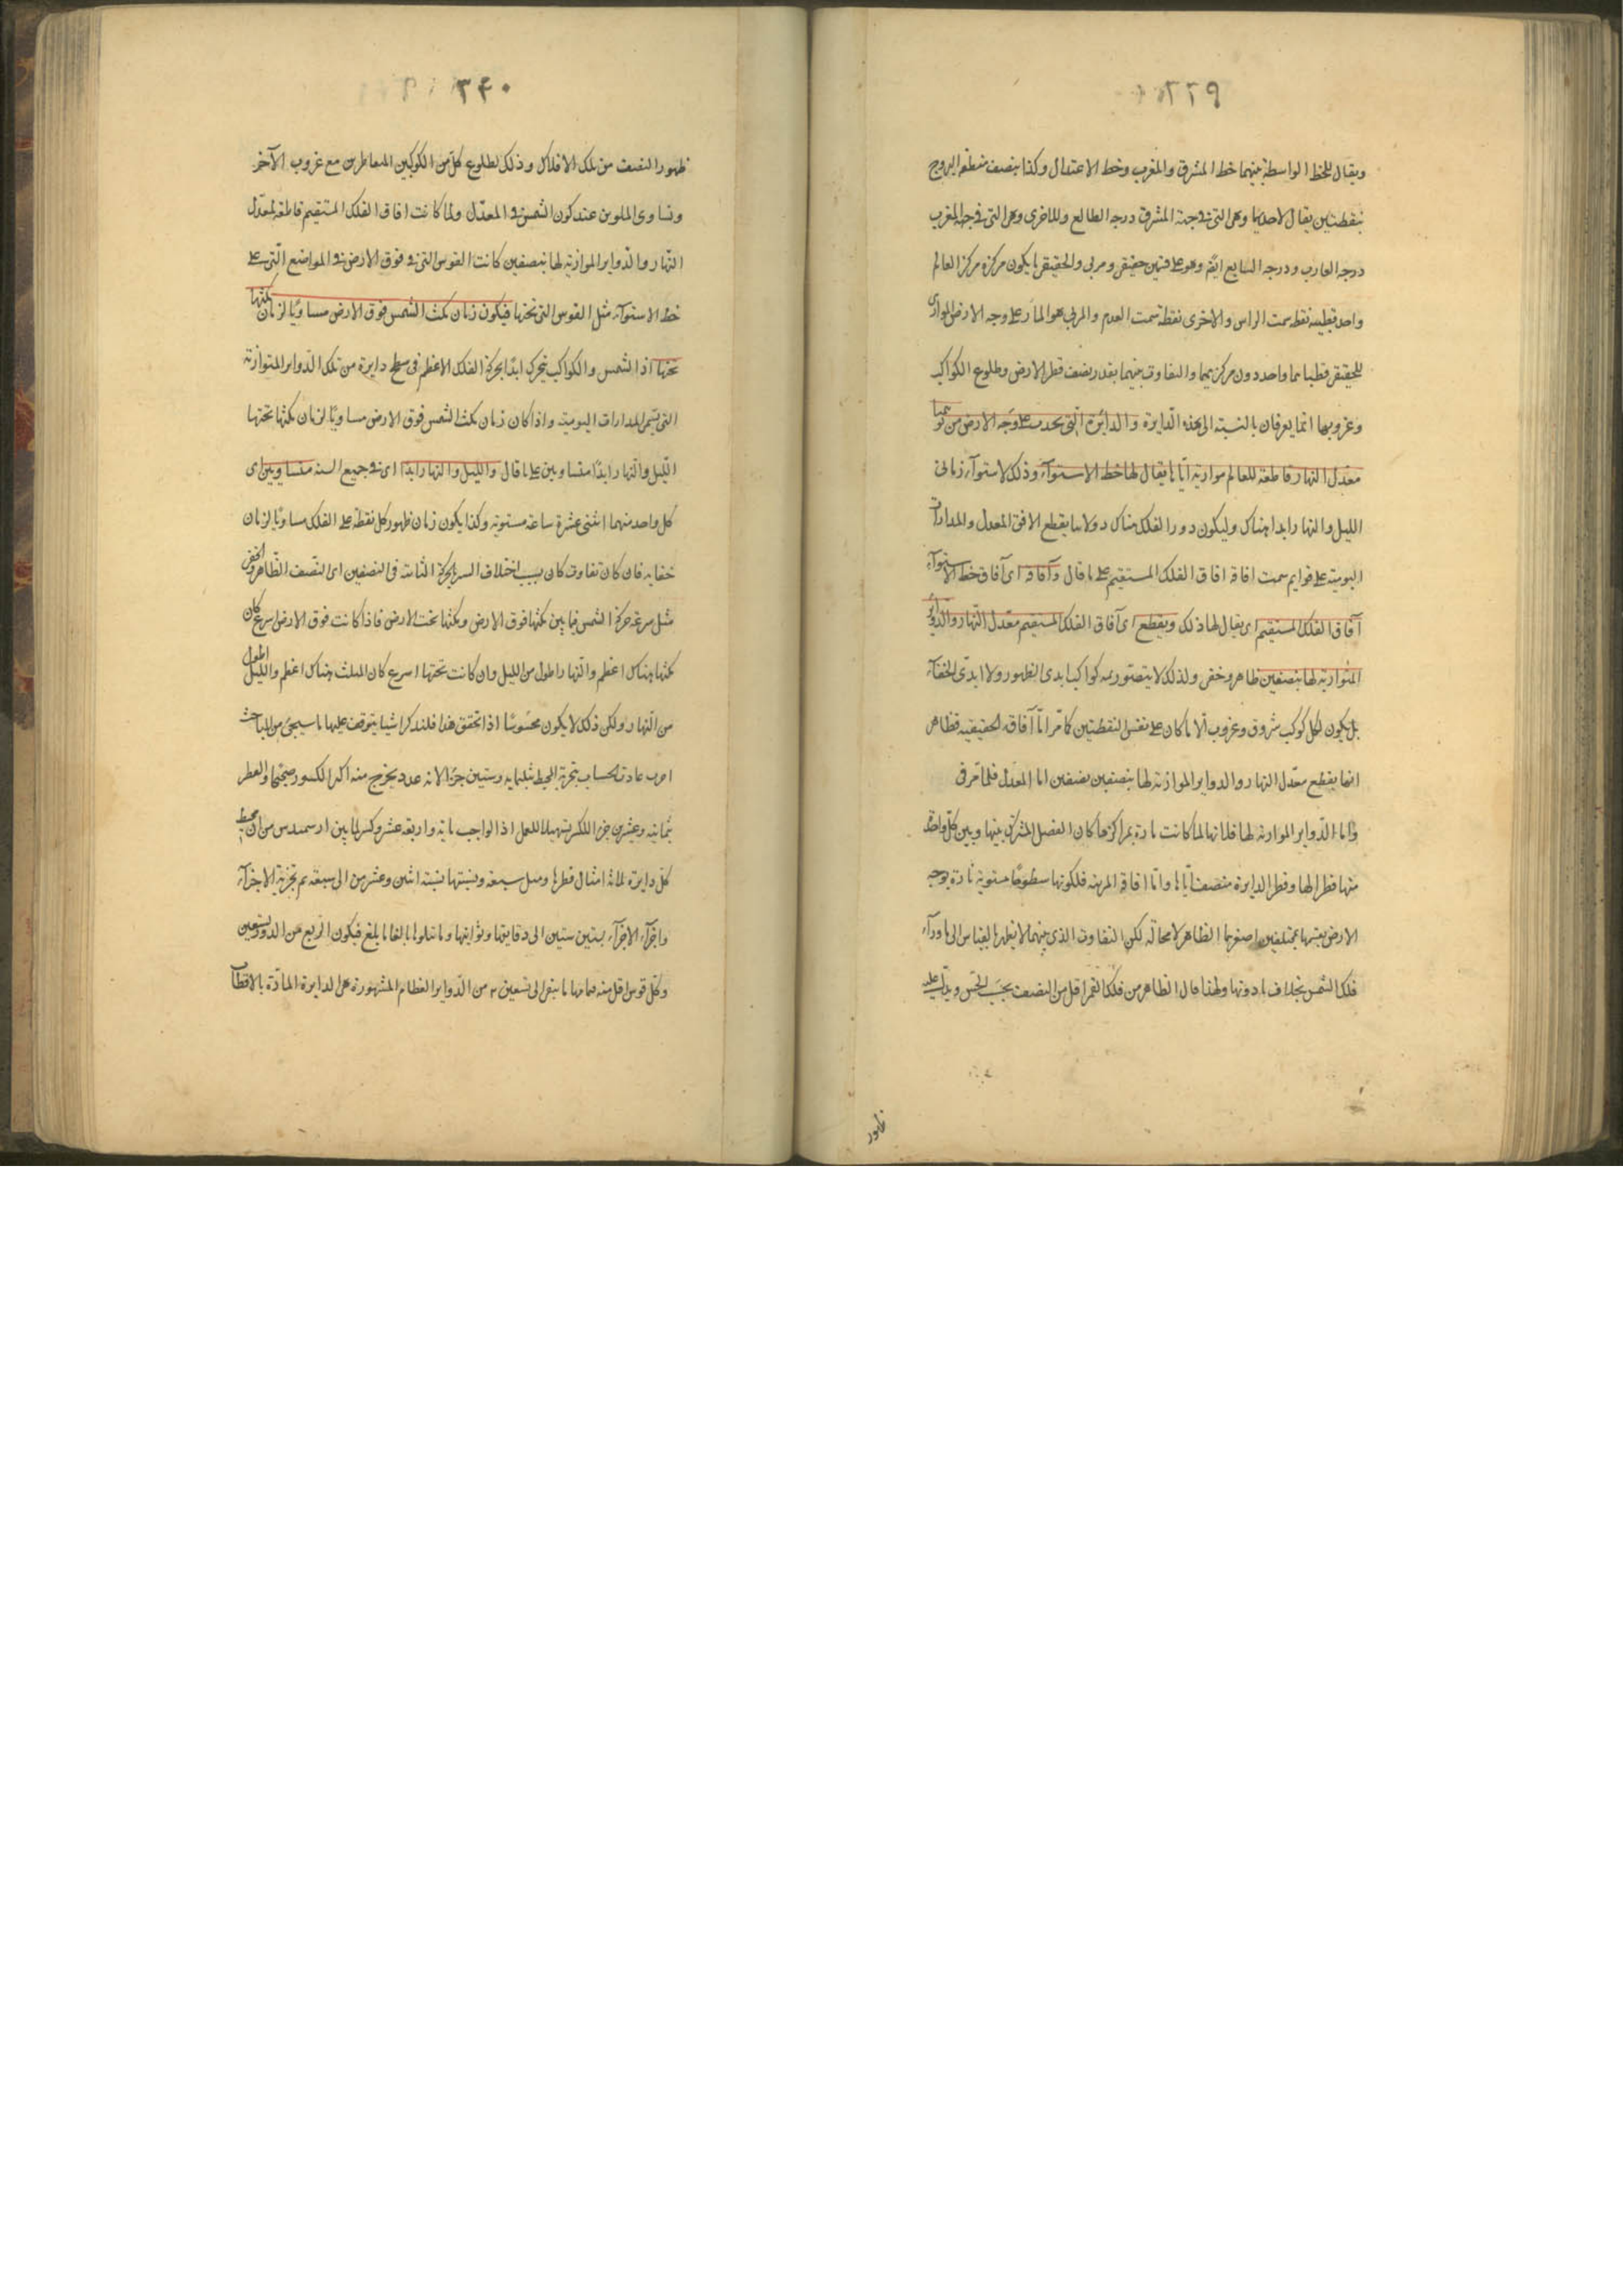 ٢٢٩
ويقال للخط الواسطة بينهما خط المشرق والمغرب وخط الاعتدال وكذا ينصف منطقة البروج
بنقطتين يقال لاحديهما وهى التى فى جهة المشرق درجه الطالع وللاخرى وهى التى فى جهة المغرب
درجه الغارب ودرجه السابع ايضم وهو على قسمين حقيقى ومرئى والحقيقى ما يكون مركزه مركز العالم
واحد قطبيه نقطه سمت الراس والاخرى نقطة سمت القدم والمرئى هو المار على وجه الارض الموازى
للحقيقى قطباهما واحد دون مركزيهما والتفاوت بينهما بقدر نصف قطر الارض وطلوع الكواكب
وغروبها انما يعرفان بالنسبة الى هذه الدايرة والدائرة التى يحدث على وجه الارض من توهما
معدل النهار قاطعة للعالم موازية اياها يقال لها خط الاستوآء وذلك لاستوآء زمانى
الليل والنهار ابدا هناك وليكون دور الفلك هناك دولابيا يقطع الافق المعدل والمدارات
اليومية على قوايم سميت افاقه افاق الفلك المستقيم على ما قال وآفاقه اى آفاق خط الاستوآء
آفاق الفلك المستقيم اى يقال لها ذلك ويقطع اى آفاق الفلك المستقيم معدل النهار والدوائر
المتوازية لها بنصفين ظاهر وخفى ولذلك لا يتصور ثمه كواكب ابدى الظهور ولا ابدى الخفآء
بل يكون لكل كوكب شروق وغروب الا ما كان على نفس النقطتين كما مر اما آفاقه الحقيقية فظاهر
انها يقطع معدل النهار والدواير الموازية لها بنصفين نصفين اما المعدل فلما مر فى
واما الدواير الموازية لها فلانها لما كانت مارة بمراكزها كان الفصل المشترك بينها وبين كل واحدة
منها قطرا لها وقطر الدايرة منصف اياها واما افاقه المرئية فلكونها سطوحا مستوية مارة بوجه
الارض يقسمها بمختلفين اصغرهما الظاهر لا محالة لكن التفاوت الذى بينهما لا يظهر بالقياس الى ما ورآء
فلك الشمس بخلاف ما دونها ولهذا قال الظاهر من فلك القمر اقل من النصف بحسب الحس ويدل عليه
ظهور
٣٤٠
ظهور النصف من تلك الافلاك وذلك لطلوع كل من الكوكبين المتقاطرين مع غروب الآخر
وتساوى الملوين عند كون الشمس فى المعدل ولما كانت افاق الفلك المستقيم قاطعة لمعدل
النهار والدواير الموازية لها بنصفين كانت القوس التى فى فوق الارض فى المواضع التى على
خط الاستوآء مثل القوس التى تحتها فيكون زمان مكث الشمس فوق الارض مساويا لزمان مكثها
تحتها اذ الشمس والكواكب يتحرك ابدا بحركة الفلك الاعظم فى سطح دايرة من تلك الدواير المتوازية
التى تسمى المدارات اليومية واذا كان زمان مكث الشمس فوق الارض مساويا لزمان مكثها تحتها
الليل والنهار ابدا متساويين على ما قال والليل والنهار ابدا اى فى جميع السنه متساويين اى
كل واحد منهما اثنى عشرة ساعة مستوية وكذا يكون زمان ظهور كل نقطة على الفلك مساويا لزمان
خفايه فان كان تفاوت كان بسبب اختلاف السير بالحركة الثانية فى النصفين اى النصف الظاهر والخفى
مثل سرعة حركة الشمس فيما بين مكثها فوق الارض ومكثها تحت الارض فاذا كانت فوق الارض اسرع كان
مكثها هناك اعظم والنهار اطول من الليل وان كانت تحتها اسرع كان المكث هناك اعظم والليل اطول
من النهار ولكن ذلك لا يكون محسوسا اذا تحقق هذا فلنذكر اشيا يتوقف عليها ما سيجئ من المباحث
عادت الحساب بتجزية المحيط بثلثمايه وستين جزءا لانه عدد يخرج منه اكثر الكسور صحيحا والقطر
بمائة وعشرين جزءا للكسر تسهيلا للعمل اذ الواجب ماية واربعة عشر وكسر لما بين ارسمندس من ان محيط
كل دايرة ثلاثة امثال قطرها ومثل سبعه ونسبتها نسبة اثنين وعشرين الى سبعة ثم تجزية الاجزآء
واجزآء الاجزآء بستين ستين الى دقايقها وثوانيها وما يتلوها بالغا ما يلغ فيكون الربع من الدور تسعين
وكل قوس اقل منه تمامها ما يبقى الى تسعين من الدواير العظام المشهورة هى الدايرة المارة بالاقطاب